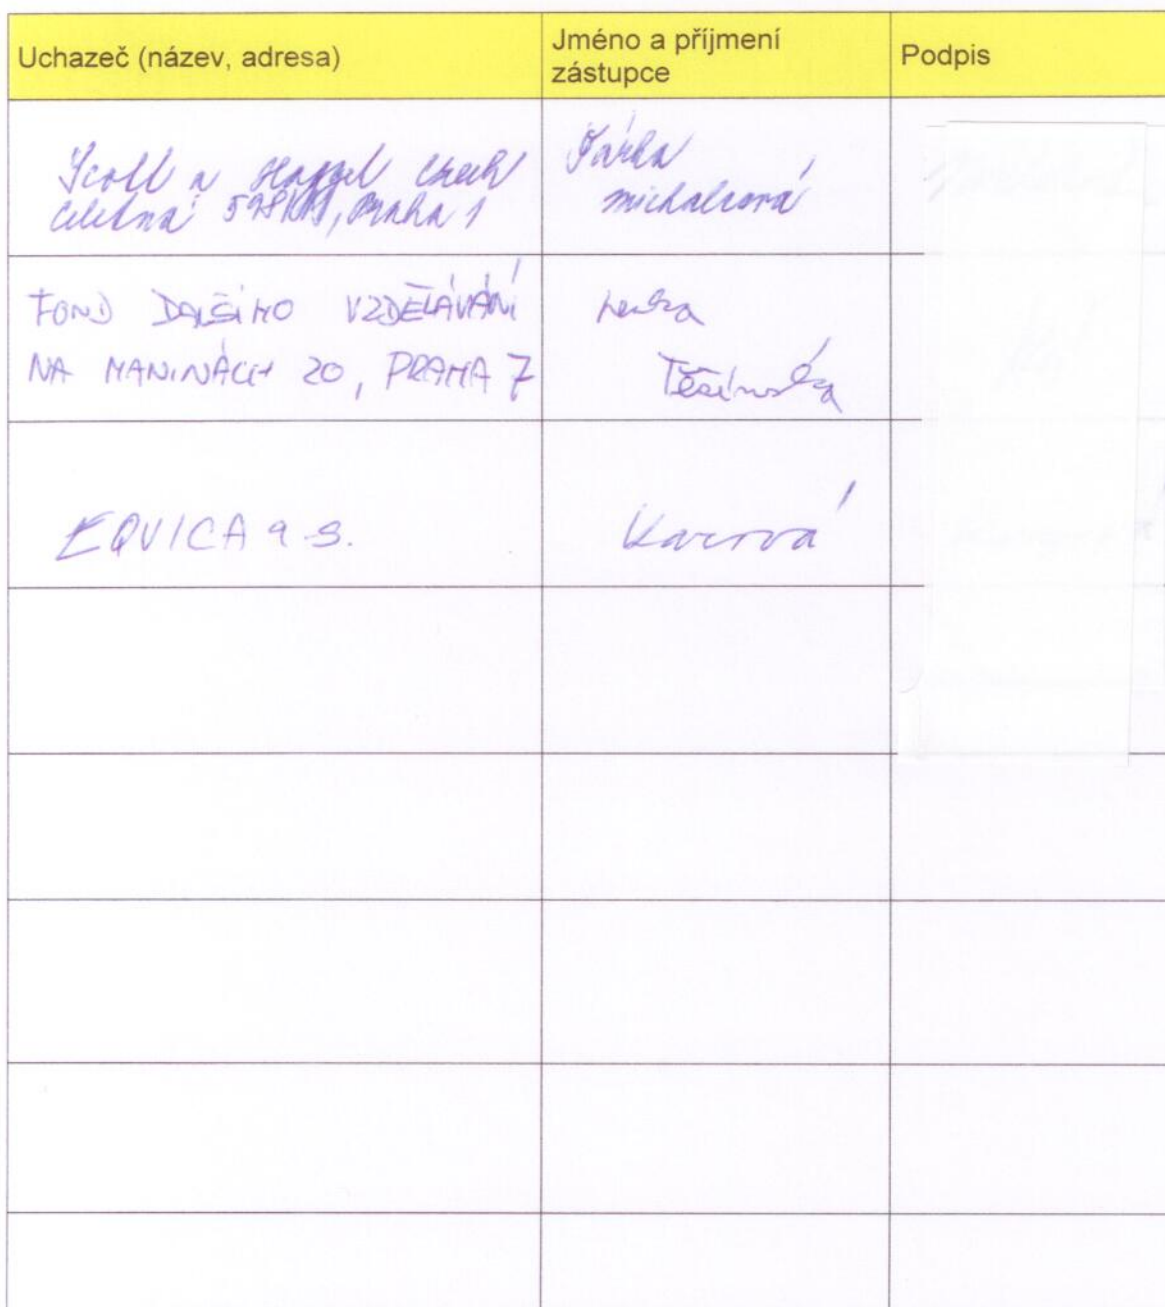 Uchazeč (název, adresa)
Jméno a příjmení
zástupce
Podpis
Scott a Hagget Czech
Celetná, Praha 1
Šárka
Michalcová
FOND DALŠÍHO VZDĚLÁVÁNÍ
NA MANINÁCH 20, PRAHA 7
Lenka
Těšínská
EQUICA a.s.